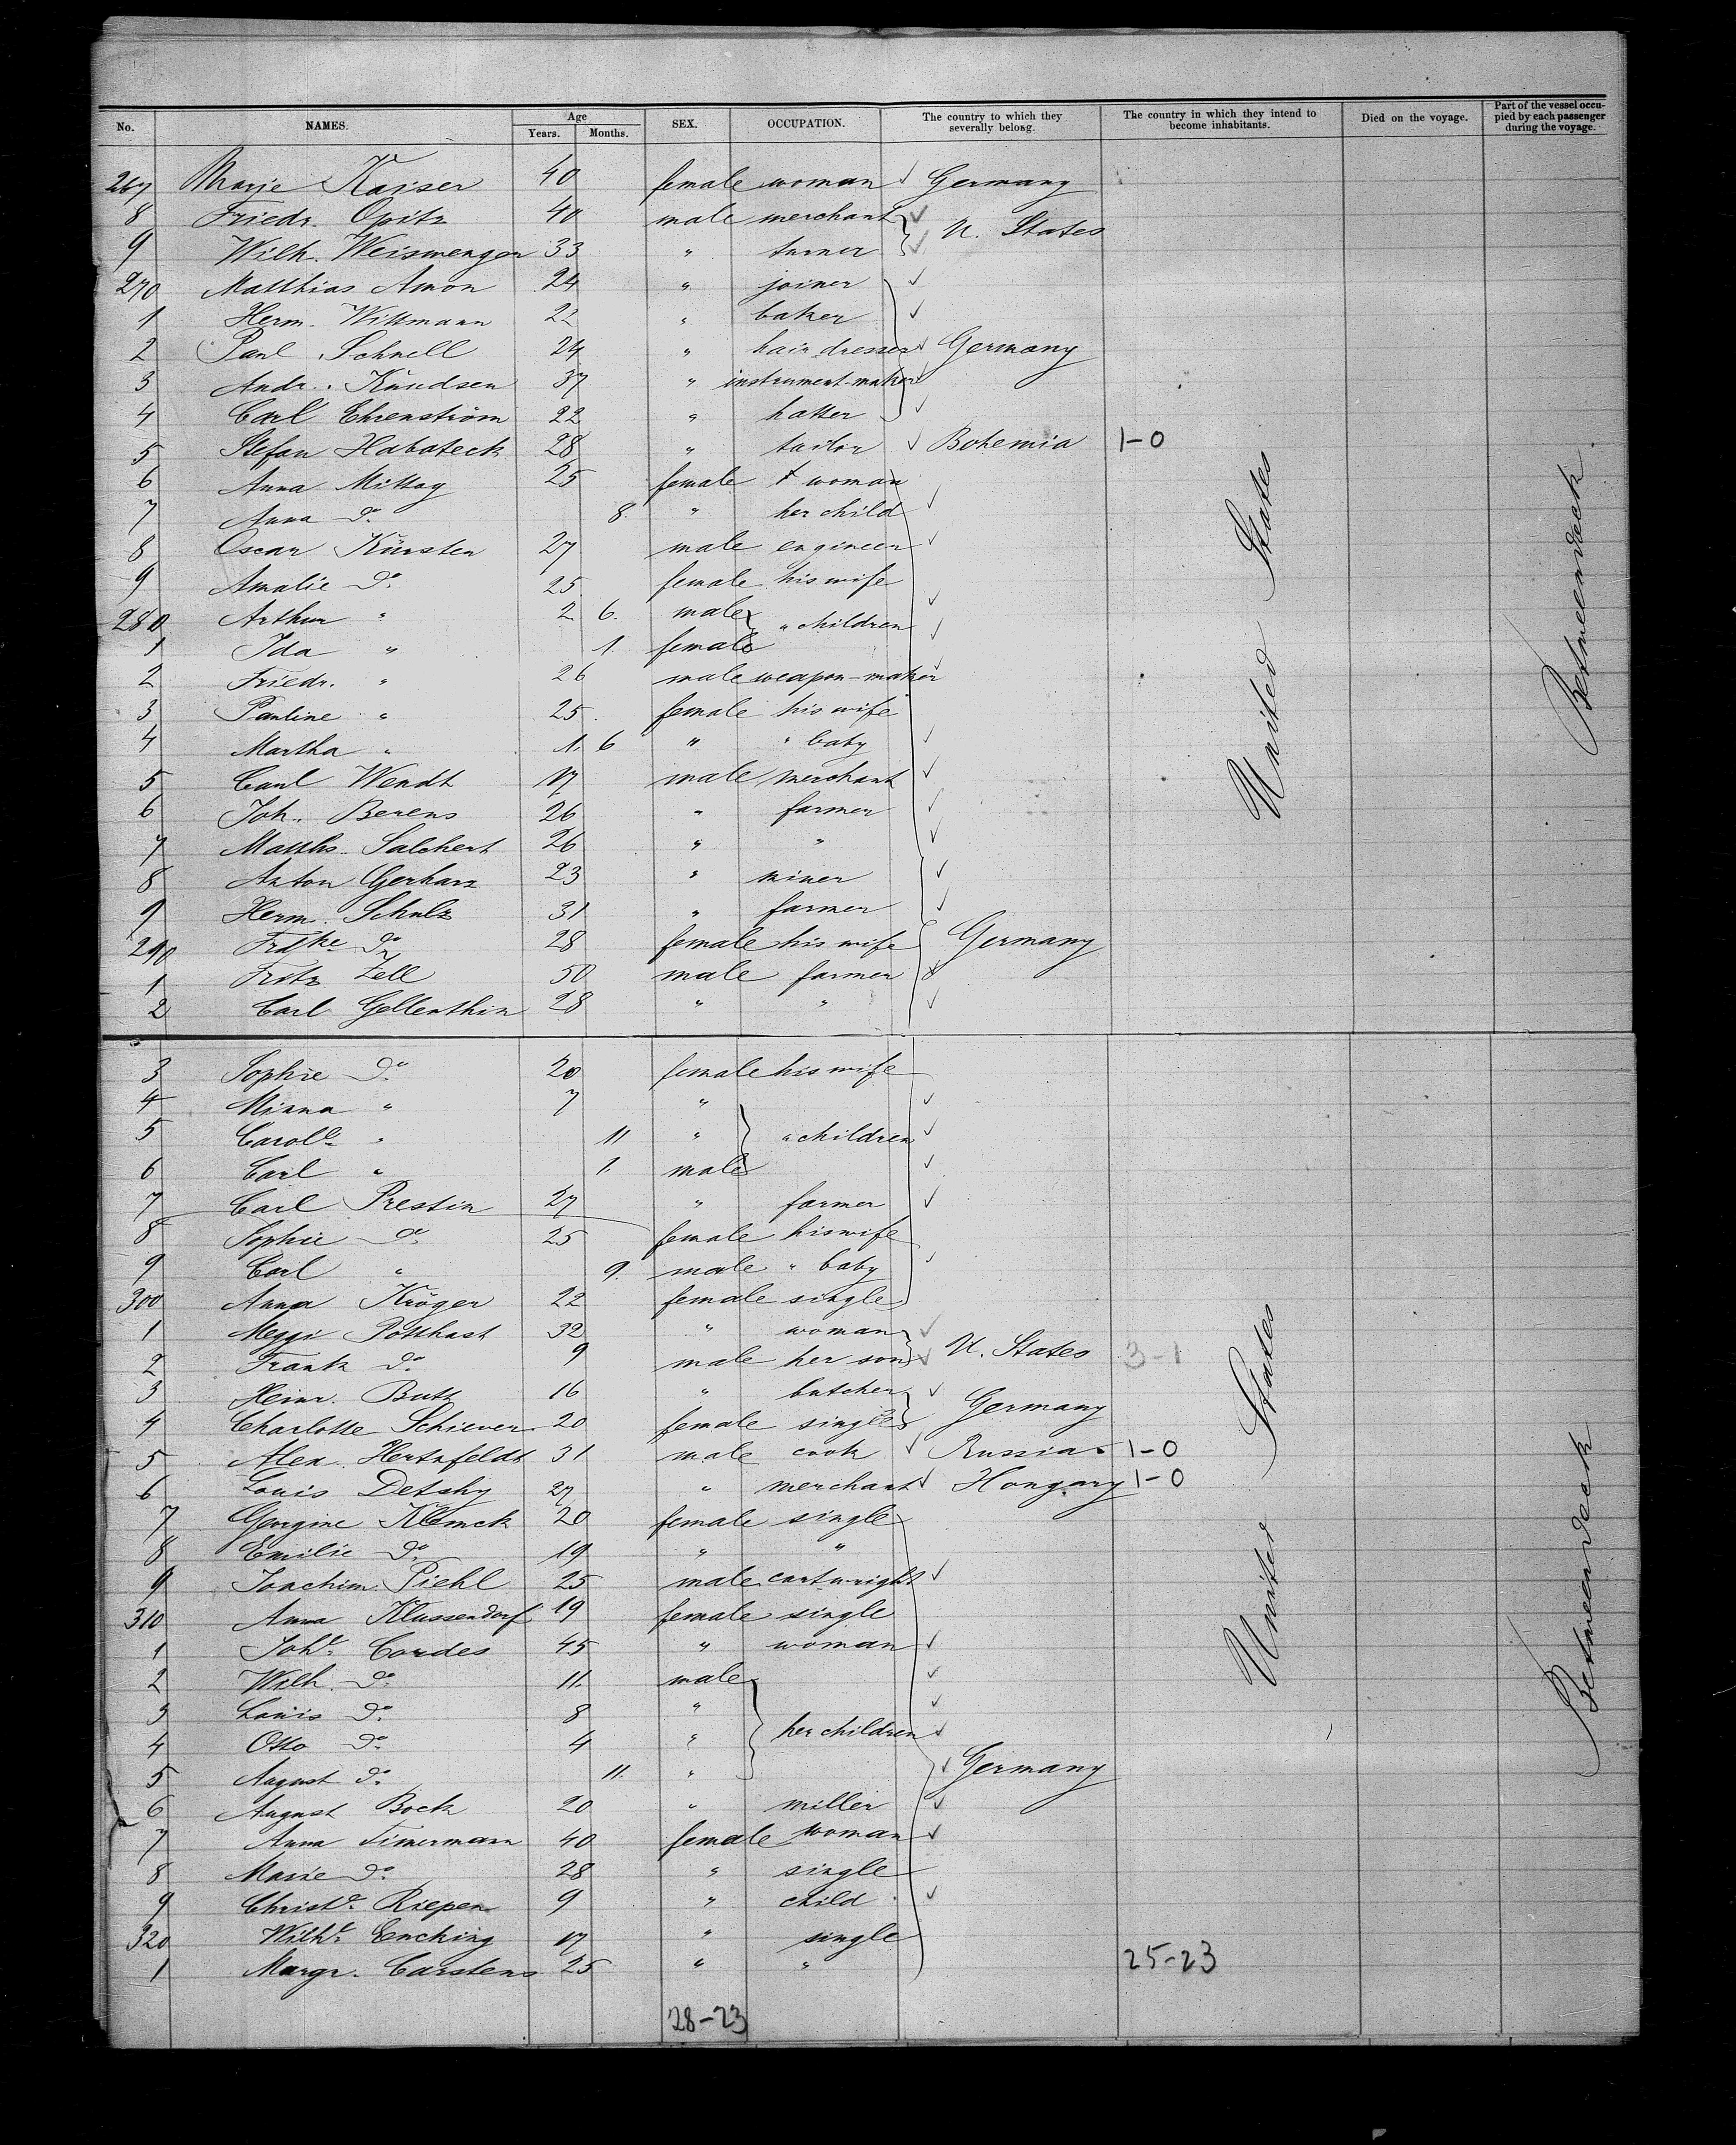 No. NAMES. Age Years. Months. SEX. OCCUPATION. The country to which they severally belong. The country in which they intend to become inhabitants. Died on the voyage. Part of the vessel occupied by each passenger during the voyage.
267 Marie Kaiser 40 female woman Germany
8 Friedr. Opitz 40 male merchant U. States
9 Wilh. Weiswenger 33 " turner
270 Matthias Amon 24 " joiner
1 Herm. Wittmann 22 " baker
2 Paul Schnell 24 " hair dresser Germany
3 Andr. Knudsen 37 " instrument-maker
4 Carl Ehrenström 22 " hatter
5 Stefan Habateck 28 " tailor Bohemia 1-0
6 Anna Mittag 25 female woman
7 Anna do. 8. " her child
8 Oscar Kürsten 27 male engineer
9 Amalie do. 25 female his wife
280 Arthur " 2 6. male " children
1 Ida " 1. female
2 Friedr. " 26 male weapon-maker
3 Pauline " 25. female his wife
4 Martha " 1. 6 " " baby
5 Carl Wendt 17 male merchant
6 Joh. Berens 26 " farmer
7 Matths. Salchert 26 " "
8 Anton Gerharz 23 " miner
9 Herm. Schulz 31 " farmer
290 Frdke do. 28 female his wife Germany
1 Fritz Zell 50 male farmer
2 Carl Gellenthin 28 " "
United States
Betweendeck.
3 Sophie do. 20 female his wife
4 Minna " 7 "
5 Carol'e " 11 " " children
6 Carl " 1. male
7 Carl Prestin 27 " farmer
8 Sophie do. 25 female his wife
9 Carl " 9. male " baby
300 Anna Kröger 22 female single
1 Meggi Potthast 32 " woman
2 Frank do. 9 male her son U. States 3-1
3 Heinr. Butt 16 " butcher
4 Charlotte Schiever 20 female single Germany
5 Alex. Hertzfeldt 31 male cook Russia 1-0
6 Louis Detshy 27 " merchant Hongary 1-0
7 Georgine Klemck 20 female single
8 Emilie do. 19 " "
9 Joachim Piehl 25 male cartwright
310 Anna Klussendorf 19 female single
1 Joh'e Cordes 45 " woman
2 Wilh. do. 11. male
3 Louis do. 8 "
4 Otto do. 4 " her children
5 August do. 11. " Germany
6 August Bock 20 " miller
7 Anna Timermann 40 female woman
8 Marie do. 28 " single
9 Christ'e Riepen 9 " child
320 Wilh'e Enching 17 " single
1 Margr. Carstens 25 " "
United States
Betweendeck
25-23
28-23